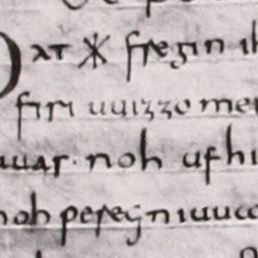 Dat ᛡ fregin ih
firi uuizzo
uuas· noh ufhi
noh pereg ni uua